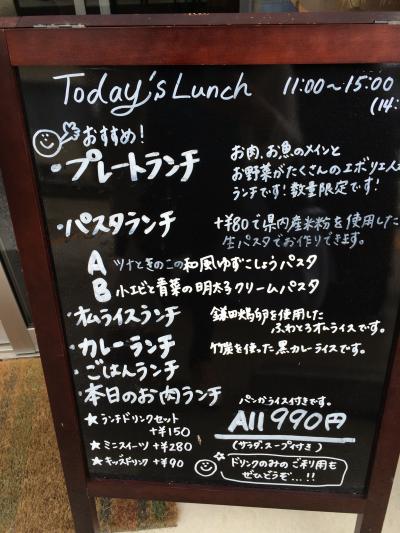 Today's Lunch 11:00~15:00
(14:
おすすめ!
・プレートランチ
お肉、お魚のメインと
お野菜がたくさんのエボリエ人
ランチです!数量限定です!
・パスタランチ
+¥80で県内産米粉を使用した
生パスタでお作りできます。
A ツナときのこの和風ゆずこしょうパスタ
B 小エビと青菜の明太子クリームパスタ
・オムライスランチ
鎌田鶏卵を使用した
ふわとろオムライスです。
・カレーランチ
竹炭を使った黒カレーライスです。
・ごはんランチ
・本日のお肉ランチ
パンかライス付きです。
All 990円
(サラダ、スープ付き)
★ランチドリンクセット
+¥150
★ミニスイーツ +¥280
★キッズドリンク +¥90
ドリンクのみのご利用も
ぜひどうぞ…!!